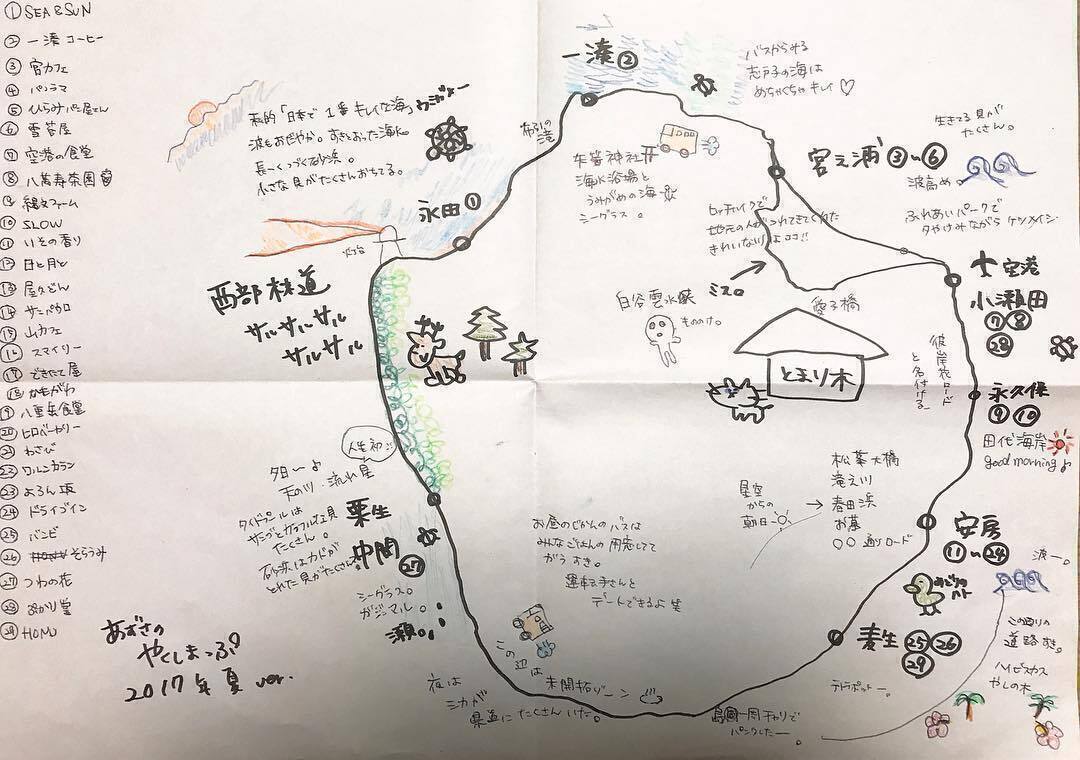 ① SEA & SUN
② 一湊 コーヒー
③ 宮カフェ
④ パノラマ
⑤ ひらみパン屋さん
⑥ 雪苔屋
⑦ 空港の食堂
⑧ 八萬寿茶園
ファーム
⑩ SLOW
⑪ いその香り
日と月と
⑬ 屋久どん
⑮ 山カフェ
スマイリー
できたて屋
⑱ かもがわ
⑲ 八重岳食堂
⑳ ヒロベーカリー
㉑ わさび
㉒ ワルンカラン
㉓ よろん坂
㉔ ドライブイン
㉕ バンビ
㉖ そらうみ
㉗ つわの花
あかり堂
HONU
一湊 ②
バスからみる
志戸子の海は
めちゃくちゃキレイ♡
私的「日本で1番キレイな海」
波もおだやか。すきとおった海水。
長〜くつづく砂浜。
小さな貝がたくさんおちてる。
永田 ①
布引の滝
矢筈神社
海水浴場と
うみがめの海
シーグラス。
宮之浦 ③〜⑥
生きてる貝が
たくさん。
波高め。
ふれあいパークで
夕やけみながら ケンメイシ
ヒッチハイクで
地元の人がつれてきてくれた
きれいな川 ココ!!
灯台
西部林道
サルサルサル
サルサル
白谷雲水峡
もののけ。
愛子橋
とまり木
空港
小瀬田
⑦ ⑧
㉘
彼岸花ロード
と名付ける。
永久保
⑨ ⑩
田代海岸
good morning ♪
人生初
夕日〜♪
天の川・流れ星
栗生
タイドプールは
サンゴとカラフルな貝
たくさん。
砂浜はカドが
とれた貝がたくさん。
中間
㉗
シーグラス。
ガジュマル。
瀬
お昼のじかんのバスは
みんなごはんの用意してて
がらすき。
運転手さんと
デートできるよ 笑
星空
からの
朝日
松峯大橋
滝之川
→ 春田浜
お墓
○○通りロード
安房
⑪〜㉔
波ー。
麦生 ㉕ ㉖
㉙
この周りの
道路すき。
ハイビスカス
やしの木
テトラポットー。
この辺は
未開拓ゾーン
夜は
シカが
県道にたくさんいた。
島一周チャリで
パンクしたー。
あずさの
やくしまっぷ
2017年夏 ver.